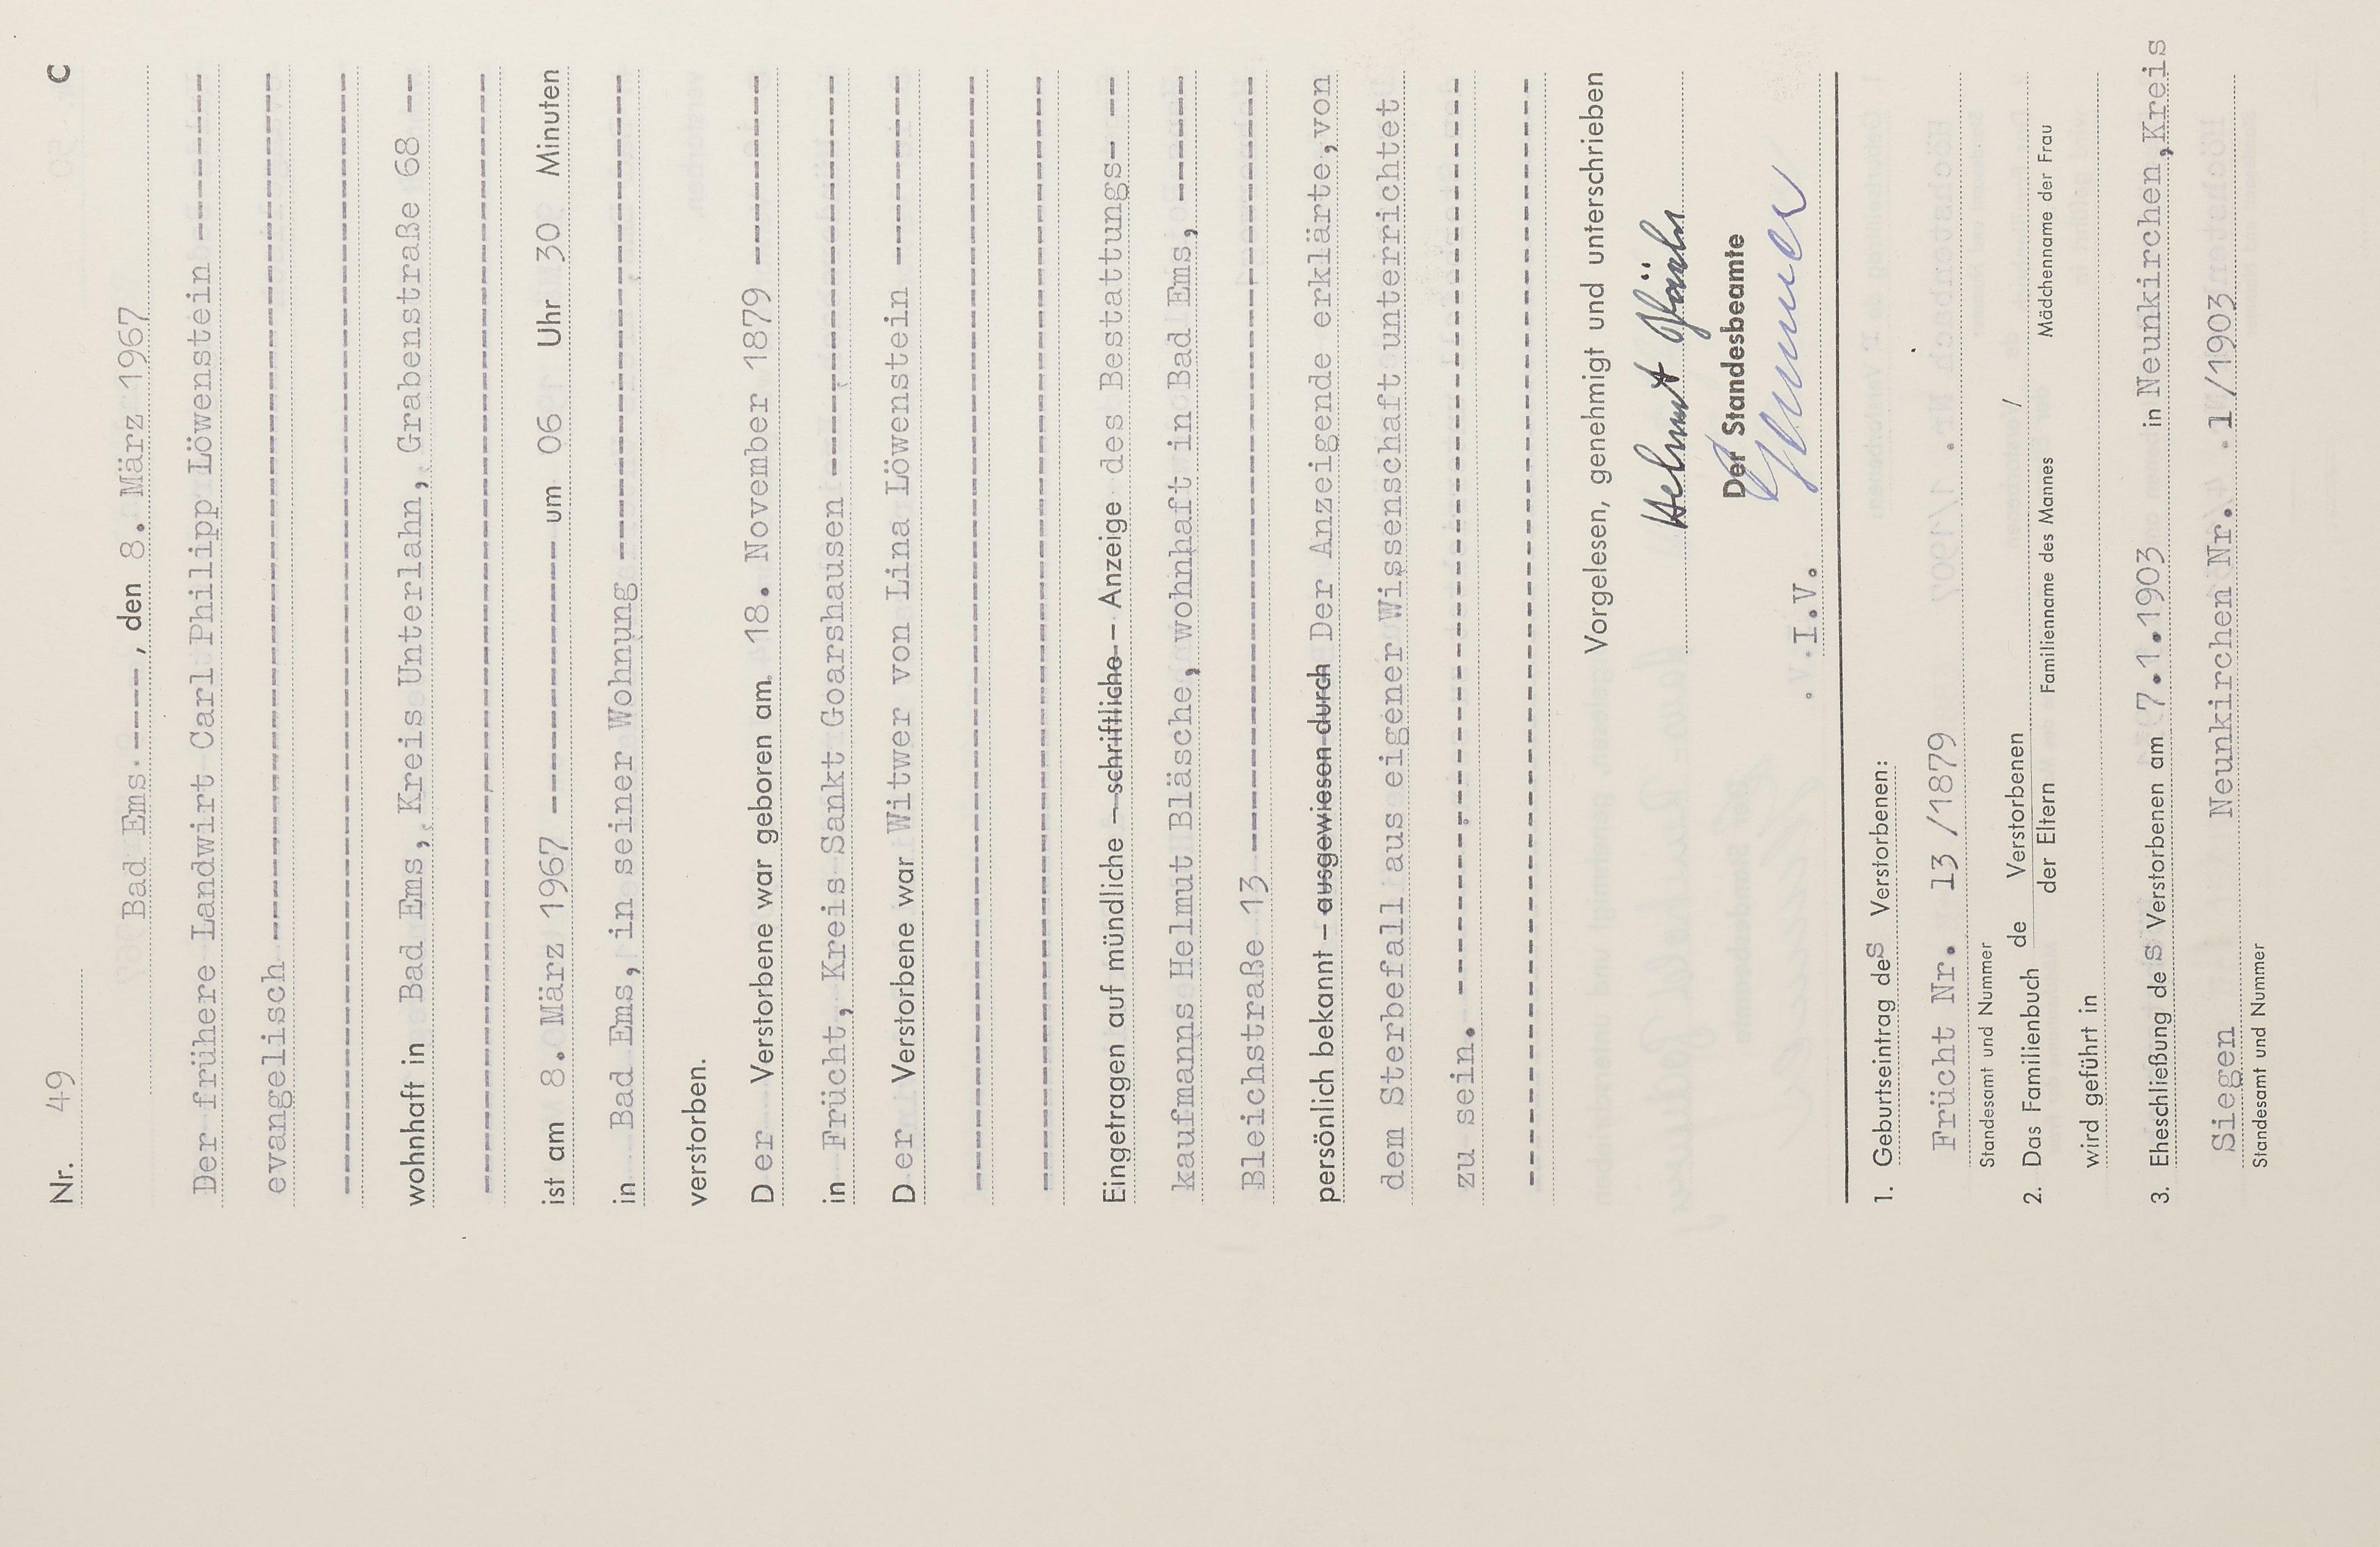 Nr. 49 C
Bad Ems ----, den 8. März 1967
Der frühere Landwirt Carl Philipp Löwenstein --------
evangelisch --------------------------------
--------------------------------
wohnhaft in Bad Ems, Kreis Unterlahn, Grabenstraße 68 --
--------------------------------
ist am 8. März 1967 -------------- um 06 Uhr 30 Minuten
in Bad Ems, in seiner Wohnung --------------------
verstorben.
Der Verstorbene war geboren am 18. November 1879 --------
in Frücht, Kreis Sankt Goarshausen ----------------
Der Verstorbene war Witwer von Lina Löwenstein --------
--------------------------------
--------------------------------
Eingetragen auf mündliche – schriftliche – Anzeige des Bestattungs- --
kaufmanns Helmut Bläsche, wohnhaft in Bad Ems, ------
Bleichstraße 13 --------------------------------
persönlich bekannt – ausgewiesen durch Der Anzeigende erklärte, von
dem Sterbefall aus eigener Wissenschaft unterrichtet
zu sein. --------------------------------
--------------------------------
Vorgelesen, genehmigt und unterschrieben
Helmut Bläsche
Der Standesbeamte
I.V.
1. Geburtseintrag des Verstorbenen:
Frücht Nr. 13 /1879
Standesamt und Nummer
2. Das Familienbuch de Verstorbenen /
der Eltern Familienname des Mannes Mädchenname der Frau
wird geführt in
3. Eheschließung des Verstorbenen am 7.1.1903 in Neunkirchen, Kreis
Siegen Neunkirchen Nr. 1/1903
Standesamt und Nummer